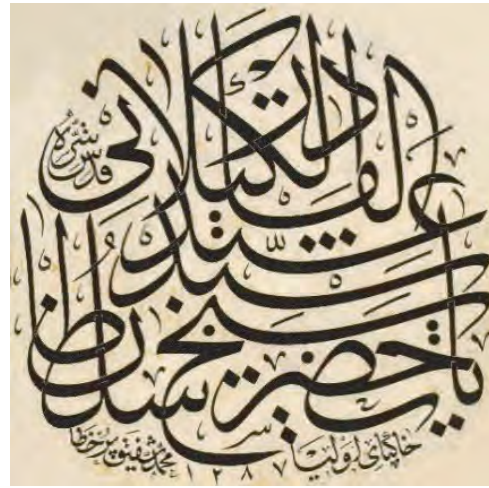 يا حضرت سلطان
شيخ سيد
عبد القادر الكيلاني
قدس سره
خاكپاي اوليا
محمد شفيق
١٢٨٧